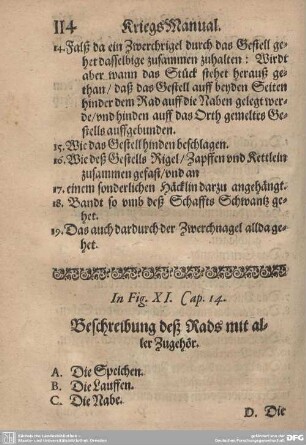 114 KriegsManual.
14. Falß da ein Zwerchrigel durch das Gestell ge-
het dasselbige zusammen zuhalten: Wirdt
aber wann das Stück stehet herauß ge-
than/ daß das Gestell auff beyden Seiten
hinder dem Rad auff die Naben gelegt wer-
de/vnd hinden auff das Orth gemeltes Ge-
stells auffgebunden.
15. Wie das Gestell hinden beschlagen.
16. Wie deß Gestells Rigel/ Zapffen vnd Kettlein
zusammen gefast/vnd an
17. einem sonderlichen Häcklin darzu angehängt.
18. Bandt so vmb deß Schaffts Schwantz ge-
het.
19. Das auch dardurch der Zwerchnagel allda ge-
het.
In Fig. XI. Cap. 14.
Beschreibung deß Rads mit al-
ler Zugehör.
A. Die Speichen.
B. Die Lauffen.
C. Die Nabe.
D. Die